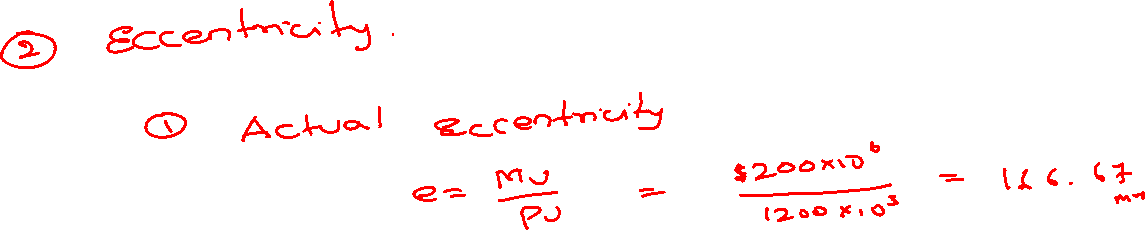 ② Eccentricity.
① Actual eccentricity
e = Mu/Pu = $200×10⁶/1200×10³ = 166.67 mm